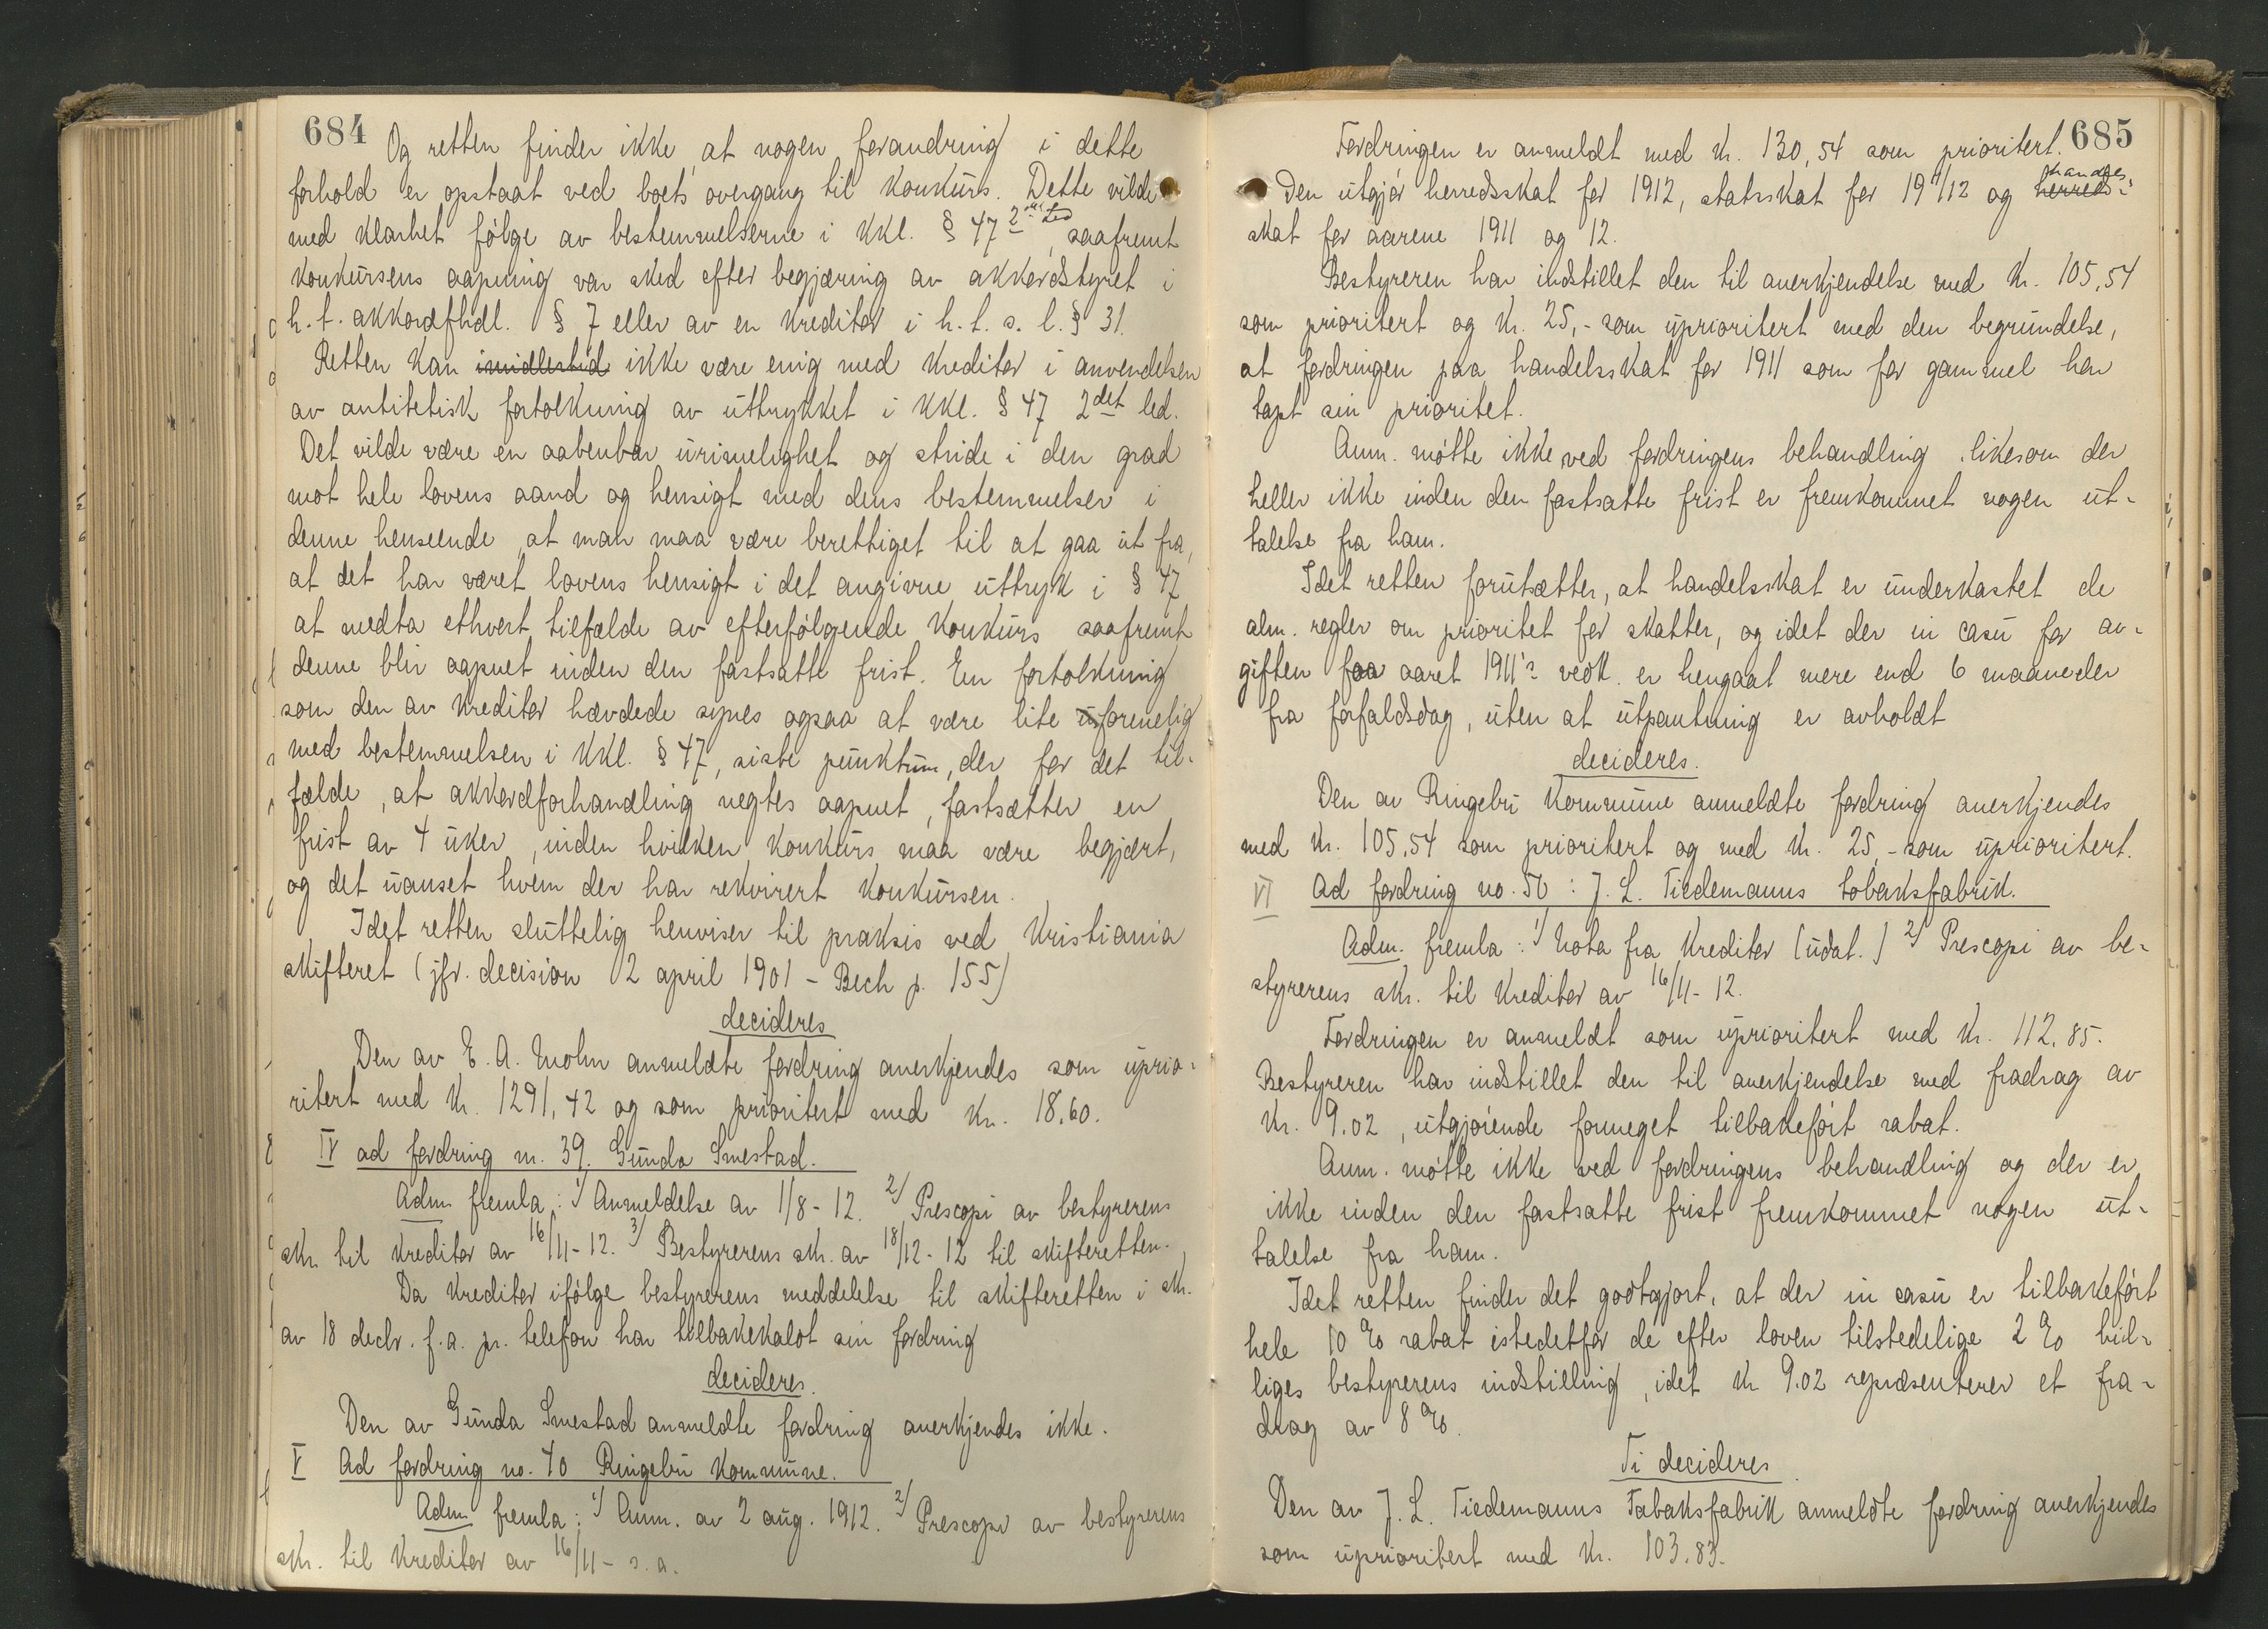 684
Og retten finder ikke at nogen forandring i dette
forhold er opstaat ved boets overgang til konkurs. Dette vilde
med klarhet følge av bestemmelserne i kkl. § 47 2det led, saafremt
konkursens aapning var sked efter begjæring av akkordstyret i
h.t. akkordfhdl. § 7 eller av en kreditor i h.t. s. l. § 31.
Retten kan imidlertid ikke være enig med kreditor i anvendelsen
av antitetisk fortolkning av uttrykket i kkl. § 47 2det led.
Det vilde være en aabenbar urimelighet og stride i den grad
mot hele lovens aand og hensigt med dens bestemmelser i
denne henseende at man maa være berettiget til at gaa ut fra,
at det har været lovens hensigt i det angivne uttryk i § 47
at medta ethvert tilfælde av efterfølgende konkurs saafremt
denne blir aapnet inden den fastsatte frist. En fortolkning
som den av kreditor hævdede synes ogsaa at være lite uforenelig
med bestemmelsen i kkl. § 47, siste punktum, der for det til-
fælde, at akkordforhandling negtes aapnet, fastsætter en
frist av 4 uker, inden hvilken konkurs maa være begjært,
og det uanset hvem der har rekvirert konkursen.
Idet retten sluttelig henviser til praksis ved Kristiania
skifteret (jfr. decision 2 april 1901 - Bech p. 155)
decideres
Den av E. A. Mohn anmeldte fordring anerkjendes som uprio-
ritert med kr. 1291,42 og som prioritert med kr. 18.60.
IV ad fordring nr. 39. Gunda Smestad.
Adm fremla: 1) Anmeldelse av 1/8-12. 2) Prescopi av bestyrerens
skr. til kreditor av 16/11-12. 3) Bestyrerens skr. av 18/12-12 til skifteretten.
Da kreditor ifølge bestyrerens meddelelse til skifteretten i skr.
av 18 decbr. f.a. pr. telefon har tilbakekaldt sin fordring
decideres.
Den av Gunda Smestad anmeldte fordring anerkjendes ikke.
V Ad fordring no. 40 Ringebu kommune.
Adm fremla: 1) Anm. av 2 aug. 1912. 2) Prescopi av bestyrerens
skr. til kreditor av 16/11- s.a.
685
Fordringen er anmeldt med kr. 130,54 som prioritert.
Den utgjør herredsskat for 1912, statsskat for 1911/12 og herreds- handels-
skat for aarene 1911 og 12.
Bestyreren har indstillet den til anerkjendelse med kr. 105,54
som prioritert og kr. 25,- som uprioritert med den begrundelse,
at fordringen paa handelsskat for 1911 som for gammel har
tapt sin prioritet.
Anm. møtte ikke ved fordringens behandling likesom der
heller ikke inden den fastsatte frist er fremkommet nogen ut-
talelse fra ham.
Idet retten forutsætter, at handelsskat er underkastet de
alm. regler om prioritet for skatter, og idet der in casu for av-
giften for aaret 1911's vedk. er hengaat mere end 6 maaneder
fra forfaldsdag, uten at utpantning er avholdt
decideres.
Den av Ringebu kommune anmeldte fordring anerkjendes
med kr. 105,54 som prioritert og med kr. 25,- som uprioritert.
VI Ad fordring no. 50: J. L. Tiedemanns tobaksfabrik.
Adm. fremla: 1) Nota fra kreditor (udat.) 2) Prescopi av be-
styrerens skr. til kreditor av 16/11-12.
Fordringen er anmeldt som uprioritert med kr. 112.85.
Bestyreren har indstillet den til anerkjendelse med fradrag av
kr. 9.02, utgjørende formeget tilbakeført rabat.
Anm. møtte ikke ved fordringens behandling og der er
ikke inden den fastsatte frist fremkommet nogen ut-
talelse fra ham.
Idet retten finder det godtgjort, at der in casu er tilbakeført
hele 10 % rabat istedetfor de efter loven tilstedelige 2 % bil-
liges bestyrerens indstilling, idet kr 9.02 repræsenterer et fra-
drag av 8 %.
Ti decideres
Den av J. L. Tiedemanns Tobaksfabrik anmeldte fordring anerkjendes
som uprioritert med kr. 103.83.